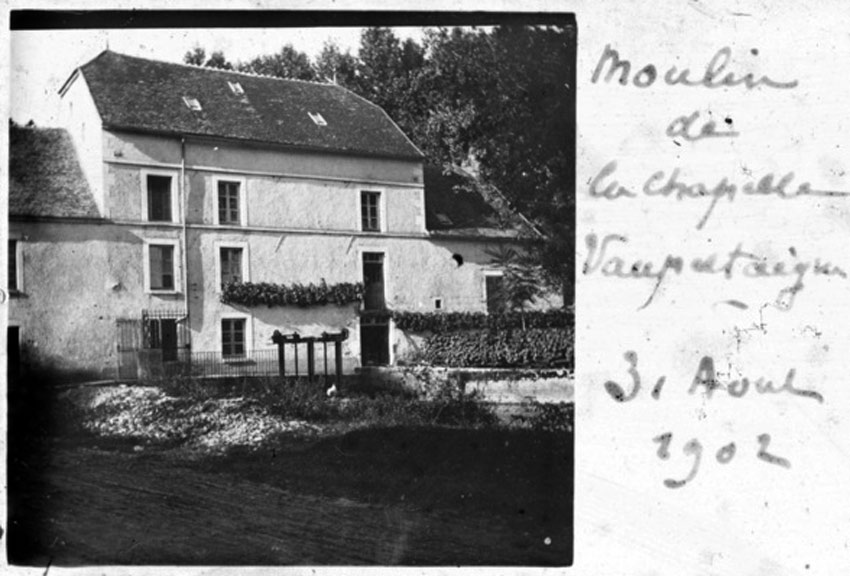 Moulin
de
la Chapelle
Vaupeltaigne
31 Aout
1902